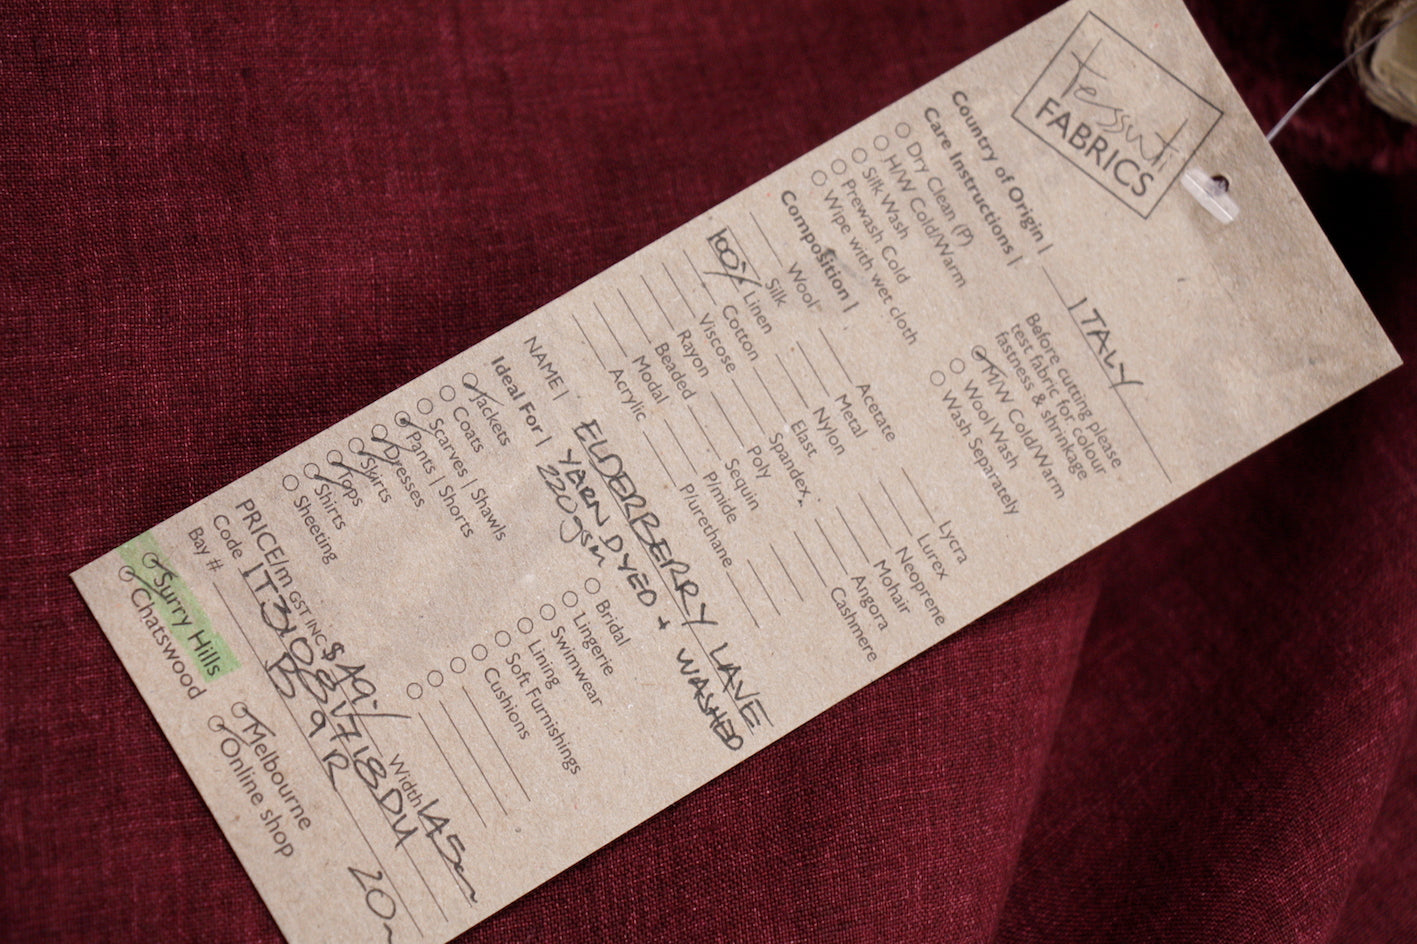 tessuti
FABRICS
Country of Origin | ITALY
Care Instructions |
Before cutting please
test fabric for colour
fastness & shrinkage
Dry Clean (P)
H/W Cold/Warm
Silk Wash
Prewash Cold
Wipe with wet cloth
M/W Cold/Warm
Wool Wash
Wash Separately
Composition |
Wool Acetate Lycra
Silk Metal Lurex
100% Linen Nylon Neoprene
Cotton Elast Mohair
Viscose Spandex Angora
Rayon Poly Cashmere
Beaded Sequin
Modal P/mide
Acrylic P/urethane
NAME | ELDERBERRY LAVE
YARN DYED + WASHED
220gsm
Ideal For |
Jackets Bridal
Coats Lingerie
Scarves | Shawls Swimwear
Pants | Shorts Lining
Dresses Soft Furnishings
Skirts Cushions
Tops
Shirts
Sheeting
PRICE/m GST INC $49./ Width 145cm
Code IT31081718DU
Bay # B 9 R 20
Surry Hills Melbourne
Chatswood Online shop